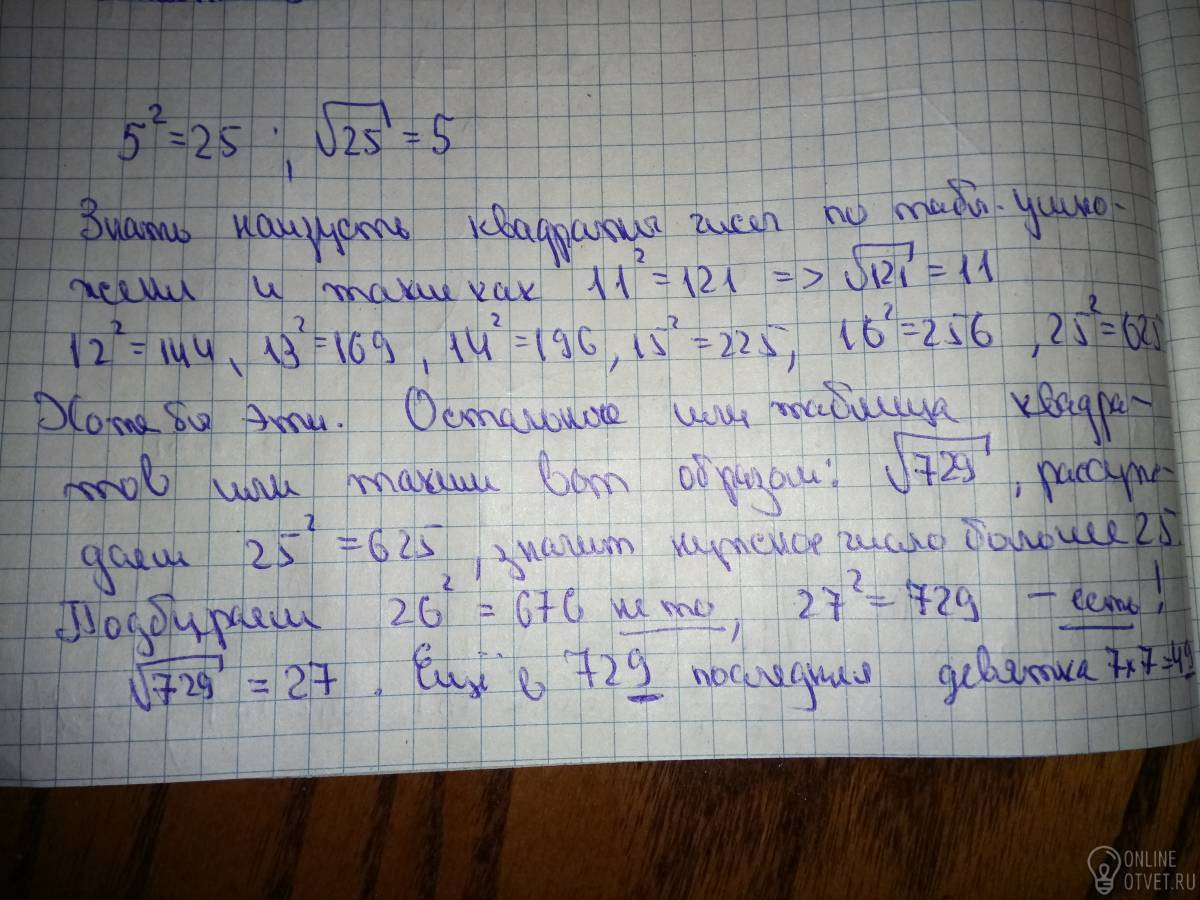 5²=25 ; √25=5
Знать наизусть квадраты чисел по табл. умно-
жени и такие как 11²=121 => √121=11
12²=144, 13²=169, 14²=196, 15²=225, 16²=256, 25²=625
Хотя бы эти. Остальное или таблица квадра-
тов или таким вот образом: √729, рассуж-
даем 25²=625, значит нужное число больше 25
Подбираем 26²=676 не то, 27²=729 – есть!
√729=27. Ещё в 729 последняя девятка 7×7=49
ONLINE
OTVET.RU